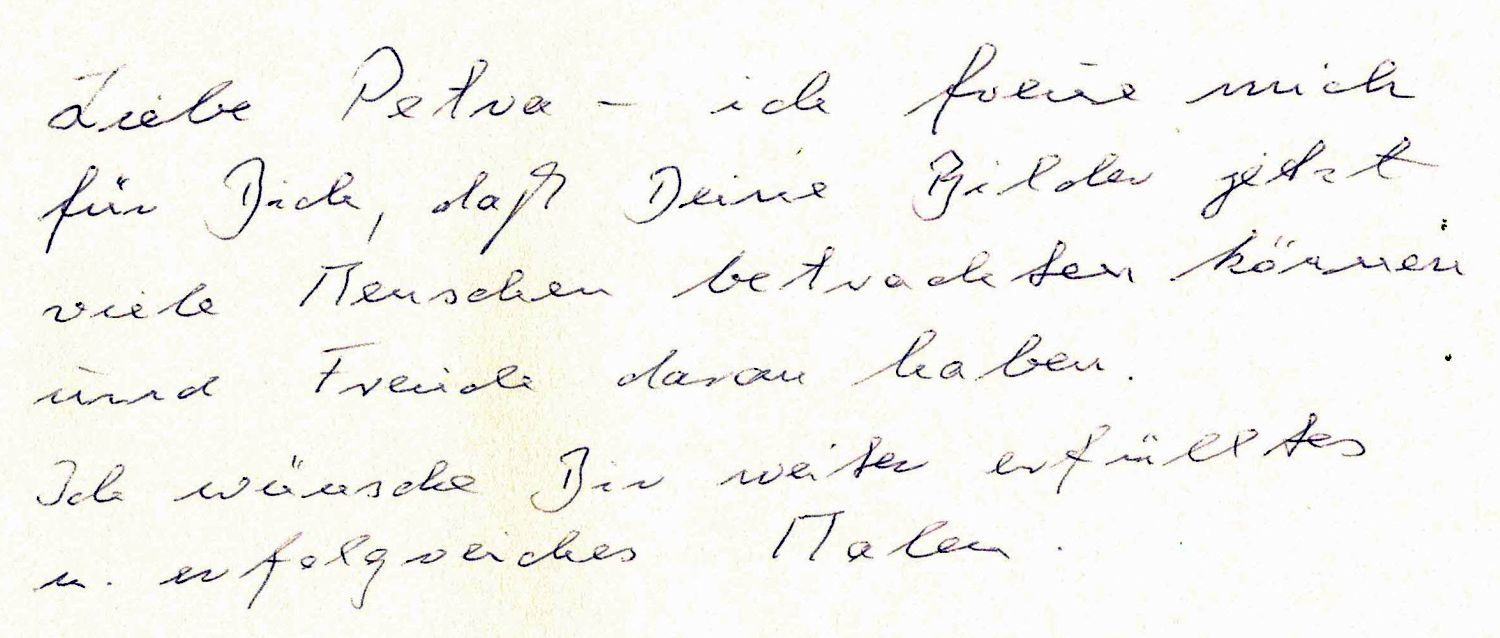 Liebe Petra – ich freue mich
für Dich, daß Deine Bilder jetzt
viele Menschen betrachten können
und Freude daran haben.
Ich wünsche Dir weiter erfülltes
u. erfolgreiches Malen.